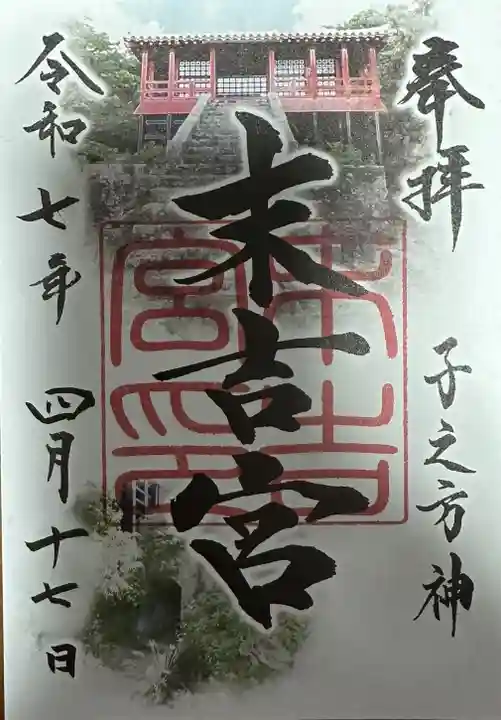 奉拝
子之方神
末吉宮
末吉宮印
令和七年 四月十七日